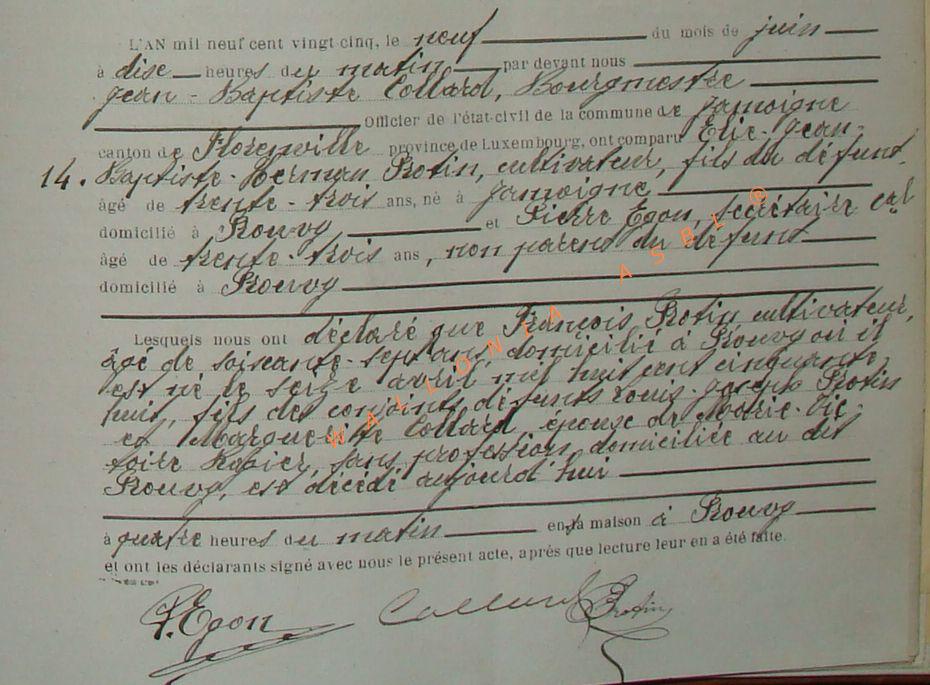 L'AN mil neuf cent vingt-cinq, le neuf du mois de juin
à dise heures du matin par devant nous
Jean-Baptiste Collard, Bourgmestre
Officier de l'état-civil de la commune de Jamoigne
canton de Florenville province de Luxembourg, ont comparu Elie-Jean-
14. Baptiste-Herman Protin, cultivateur, fils du défunt,
âgé de trente-trois ans, né à Jamoigne
domicilié à Prouvy et Pierre Egon, secrétaire cal
âgé de trente-trois ans, non parent du défunt
domicilié à Prouvy
Lesquels nous ont déclaré que François Protin cultivateur,
âgé de soixante-sept ans, domicilié à Prouvy où il
est né le seize avril mil huit cent cinquante-
huit, fils des conjoints défunts Louis-Joseph Protin
et Marguerite Collard, épouse de Marie-Vic-
toire, sans profession, domiciliée au dit
Prouvy, est décédé aujourd'hui
à quatre heures du matin en sa maison à Prouvy
et ont les déclarants signé avec nous le présent acte, après que lecture leur en a été faite.
P. Egon Collard E Protin
WALLONIA ASBL ®